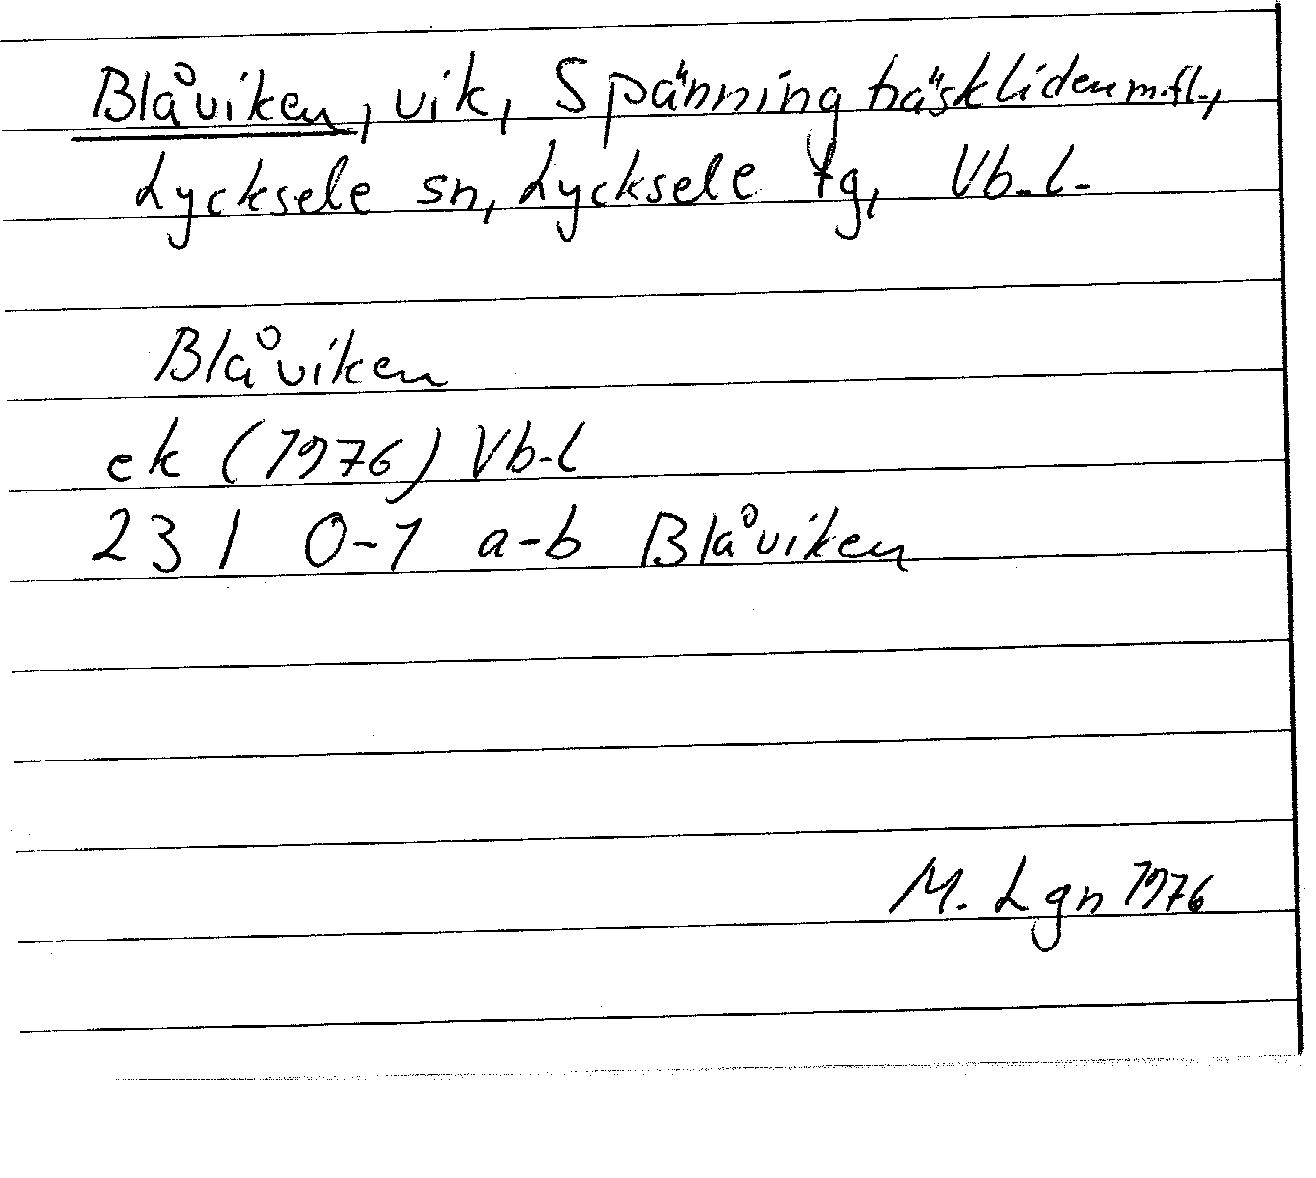 Blåviken, vik, Spänningträskliden m.fl.,
Lycksele sn, Lycksele tg, Vb.l.
Blåviken
ek (1976) Vb-l
23 I 0-1 a-b Blåviken
M. Lgn 1976